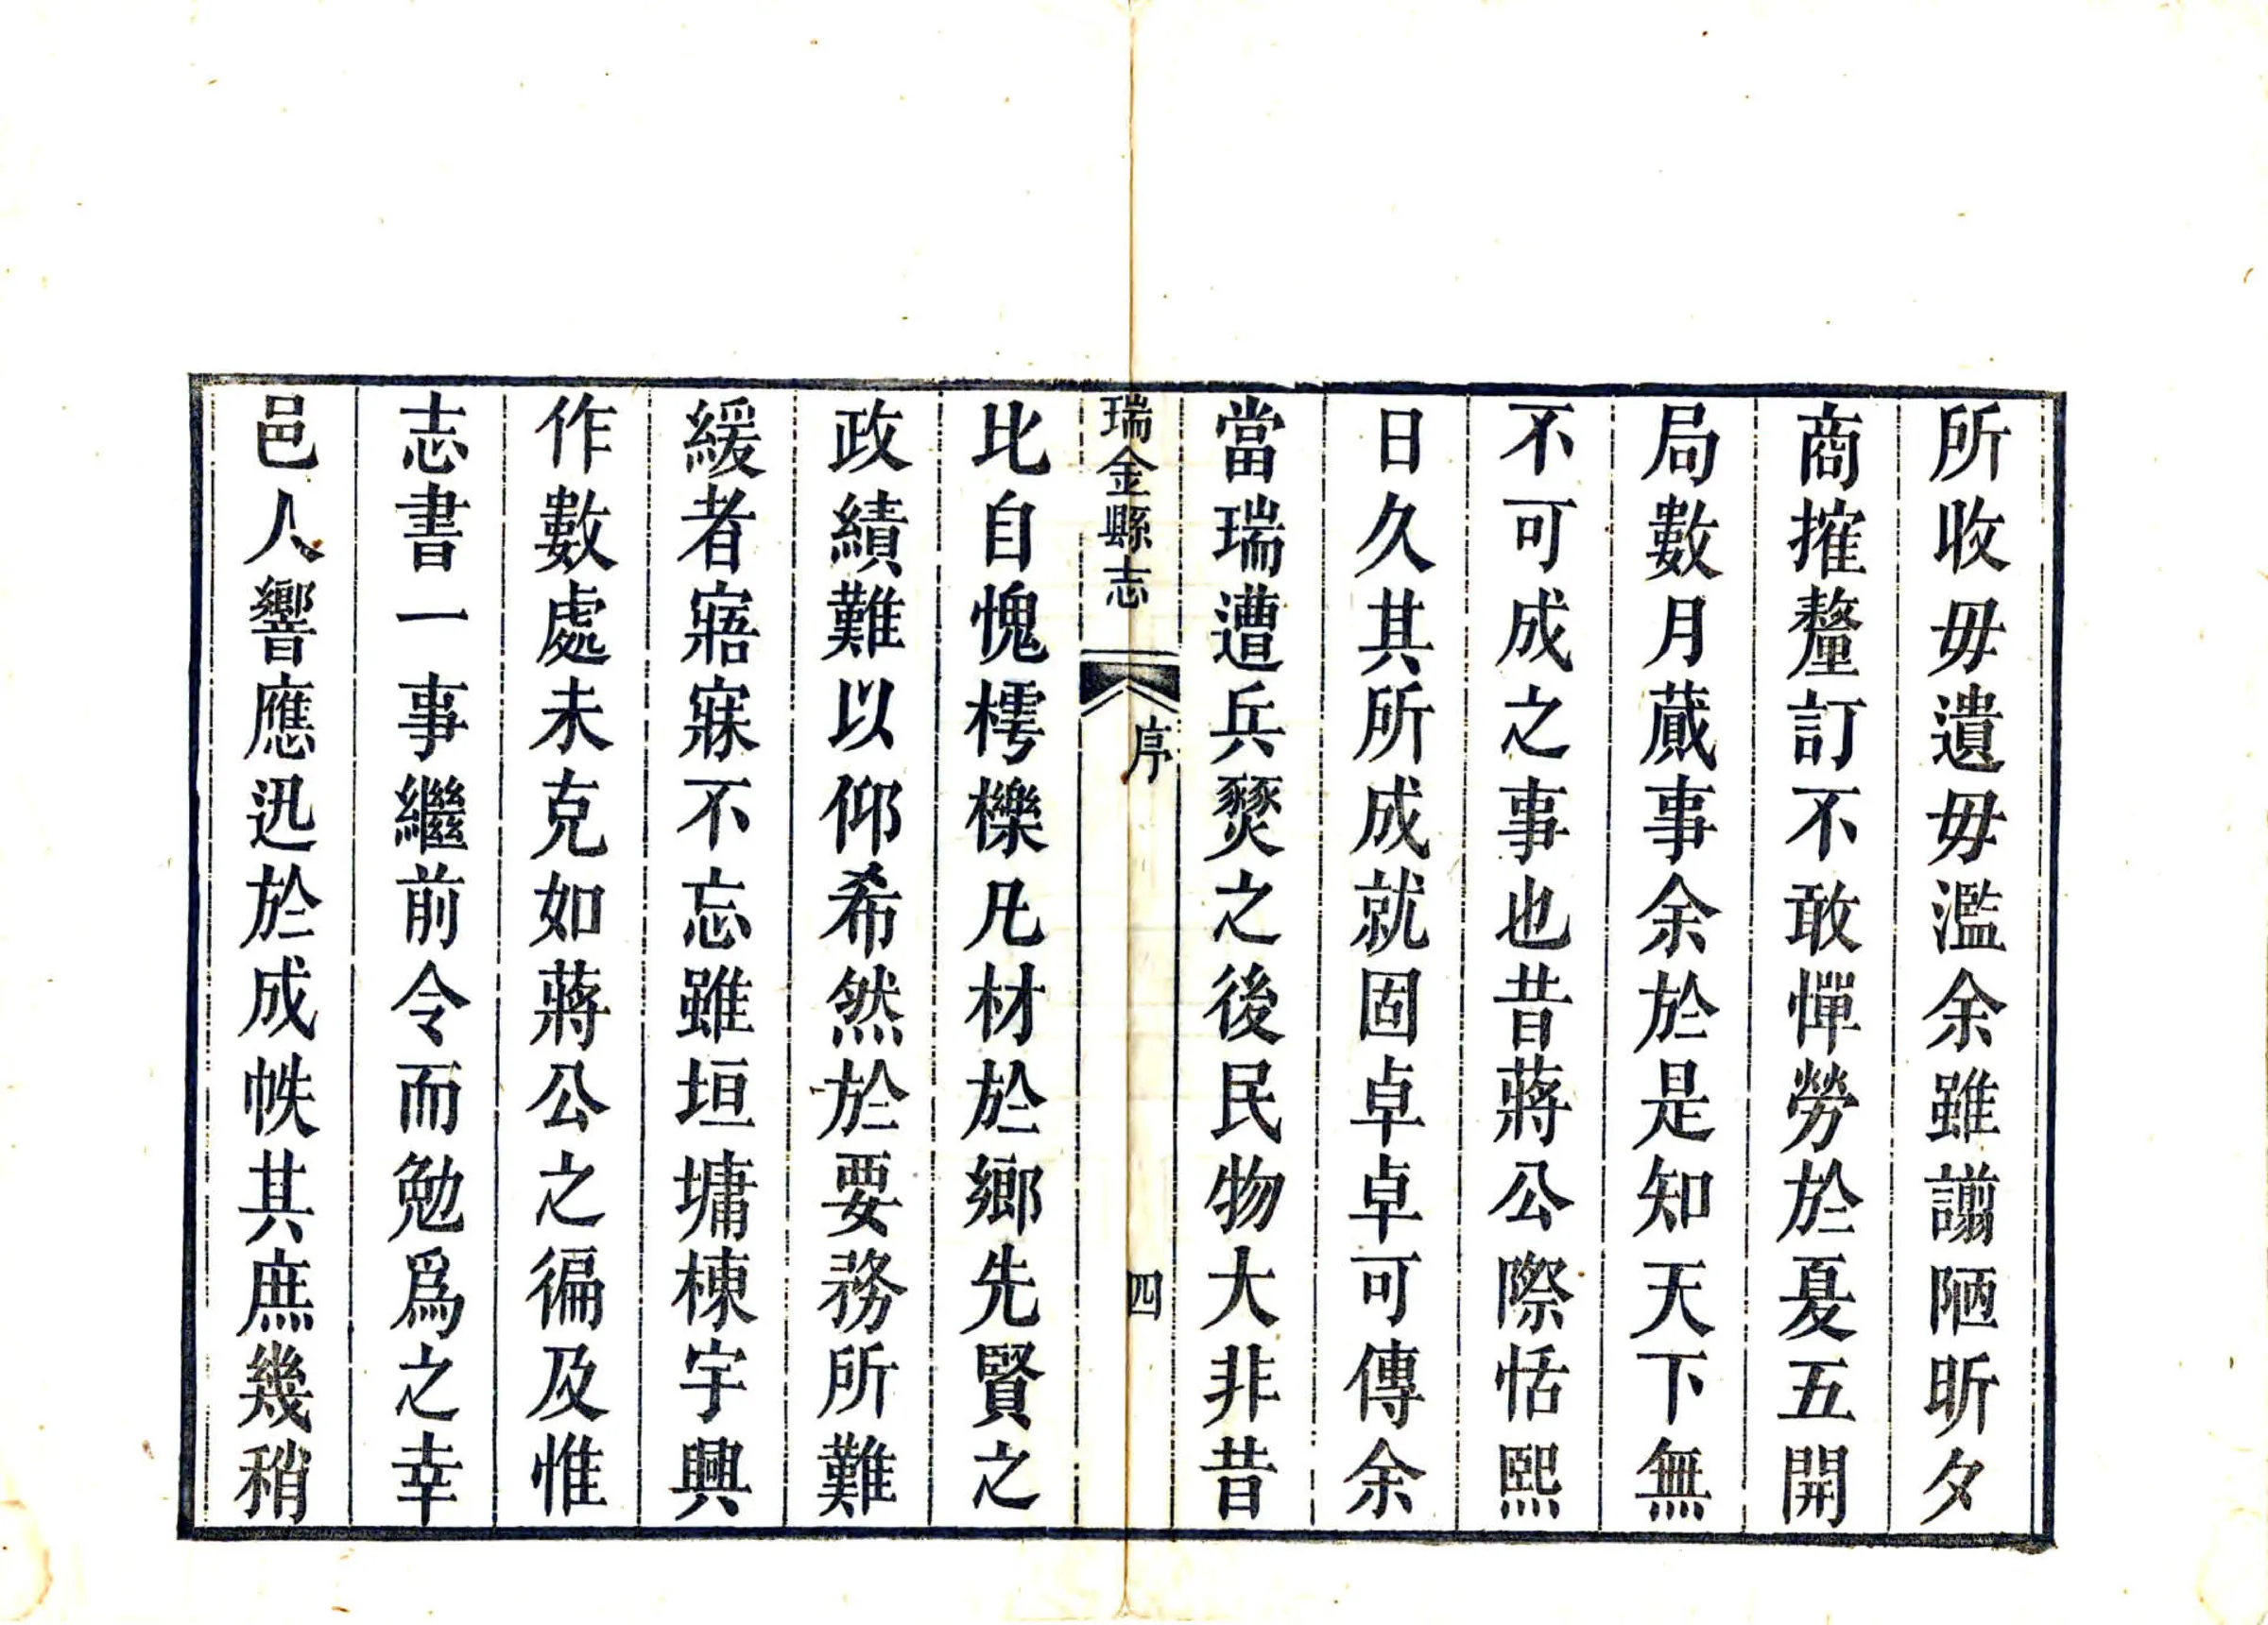 所收毋遺毋濫余雖謭陋昕夕
商搉釐訂不敢憚勞於戛五開
局數月蕆事余於是知天下無
不可成之事也昔蔣公際恬熙
日久其所成就固卓卓可傳余
當瑞遭兵燹之後民物大非昔
瑞金縣志
序
四
比自愧樗櫟凡材於鄉先賢之
政績難以仰希然於要務所難
緩者寤寐不忘雖垣墉棟宇興
作數處未克如蔣公之徧及惟
志書一事繼前令而勉爲之幸
邑人響應迅於成帙其庶幾稍